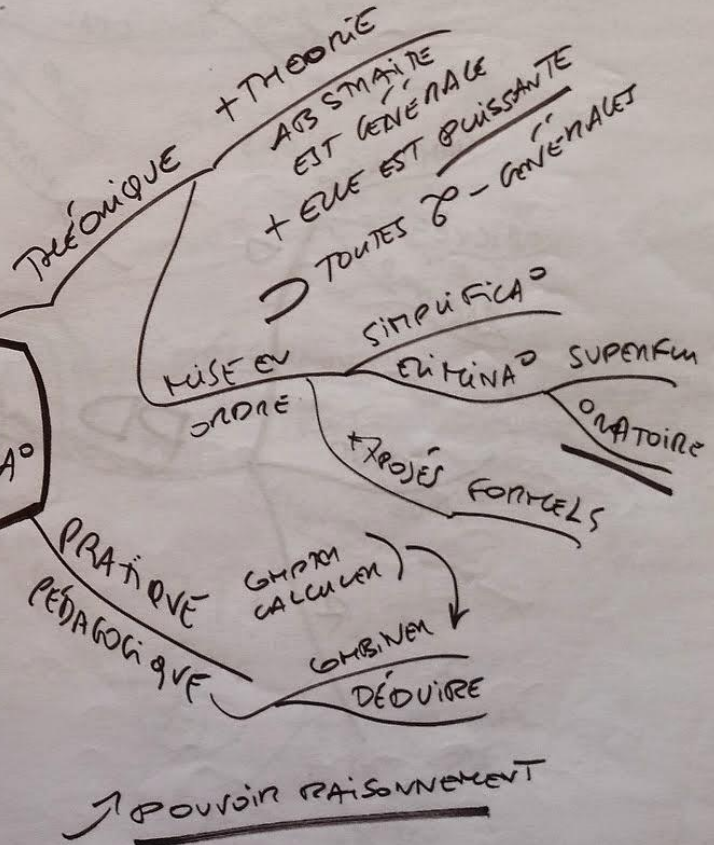 THÉORIQUE
+ THEORIE
ABSTRAITE
EST GÉNÉRALE
+ ELLE EST PUISSANTE
TOUTES - GÉNÉRALES
MISE EN
ORDRE
SIMPLIFICA°
ELIMINA°
SUPERFLU
ORATOIRE
+XPOSÉS FORMELS
A°
PRATIQUE
PÉDAGOGIQUE
CALCULER
COMBINER
DÉDUIRE
↗ POUVOIR RAISONNEMENT